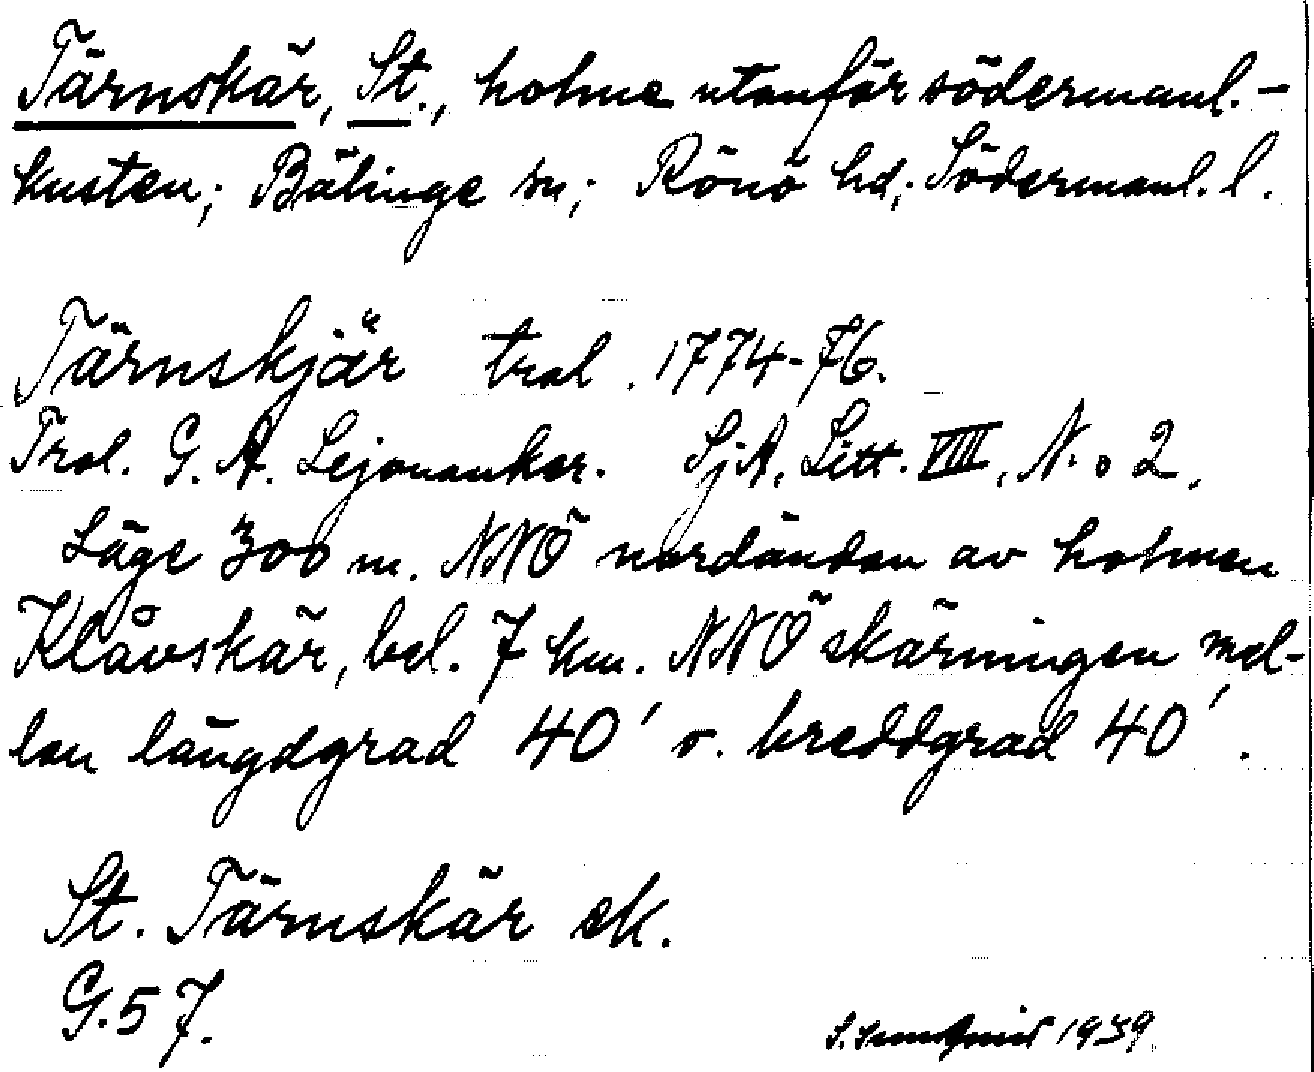 Tärnskär, St., holme utanför södermanl.-
kusten; Bälinge sn; Rönö hd; Södermanl. l.
Tärnskjär trol. 1774-76.
Trol. G. A. Lejonanker. SjA, Litt. VIII, N.o 2.
Läge 300 m. NNÖ nordändan av holmen
Klåvskär, bel. 7 km. NNÖ skärningen mel-
lan längdgrad 40' o. breddgrad 40'.
St. Tärnskär ek.
G.57.
S. Sundqvist 1939